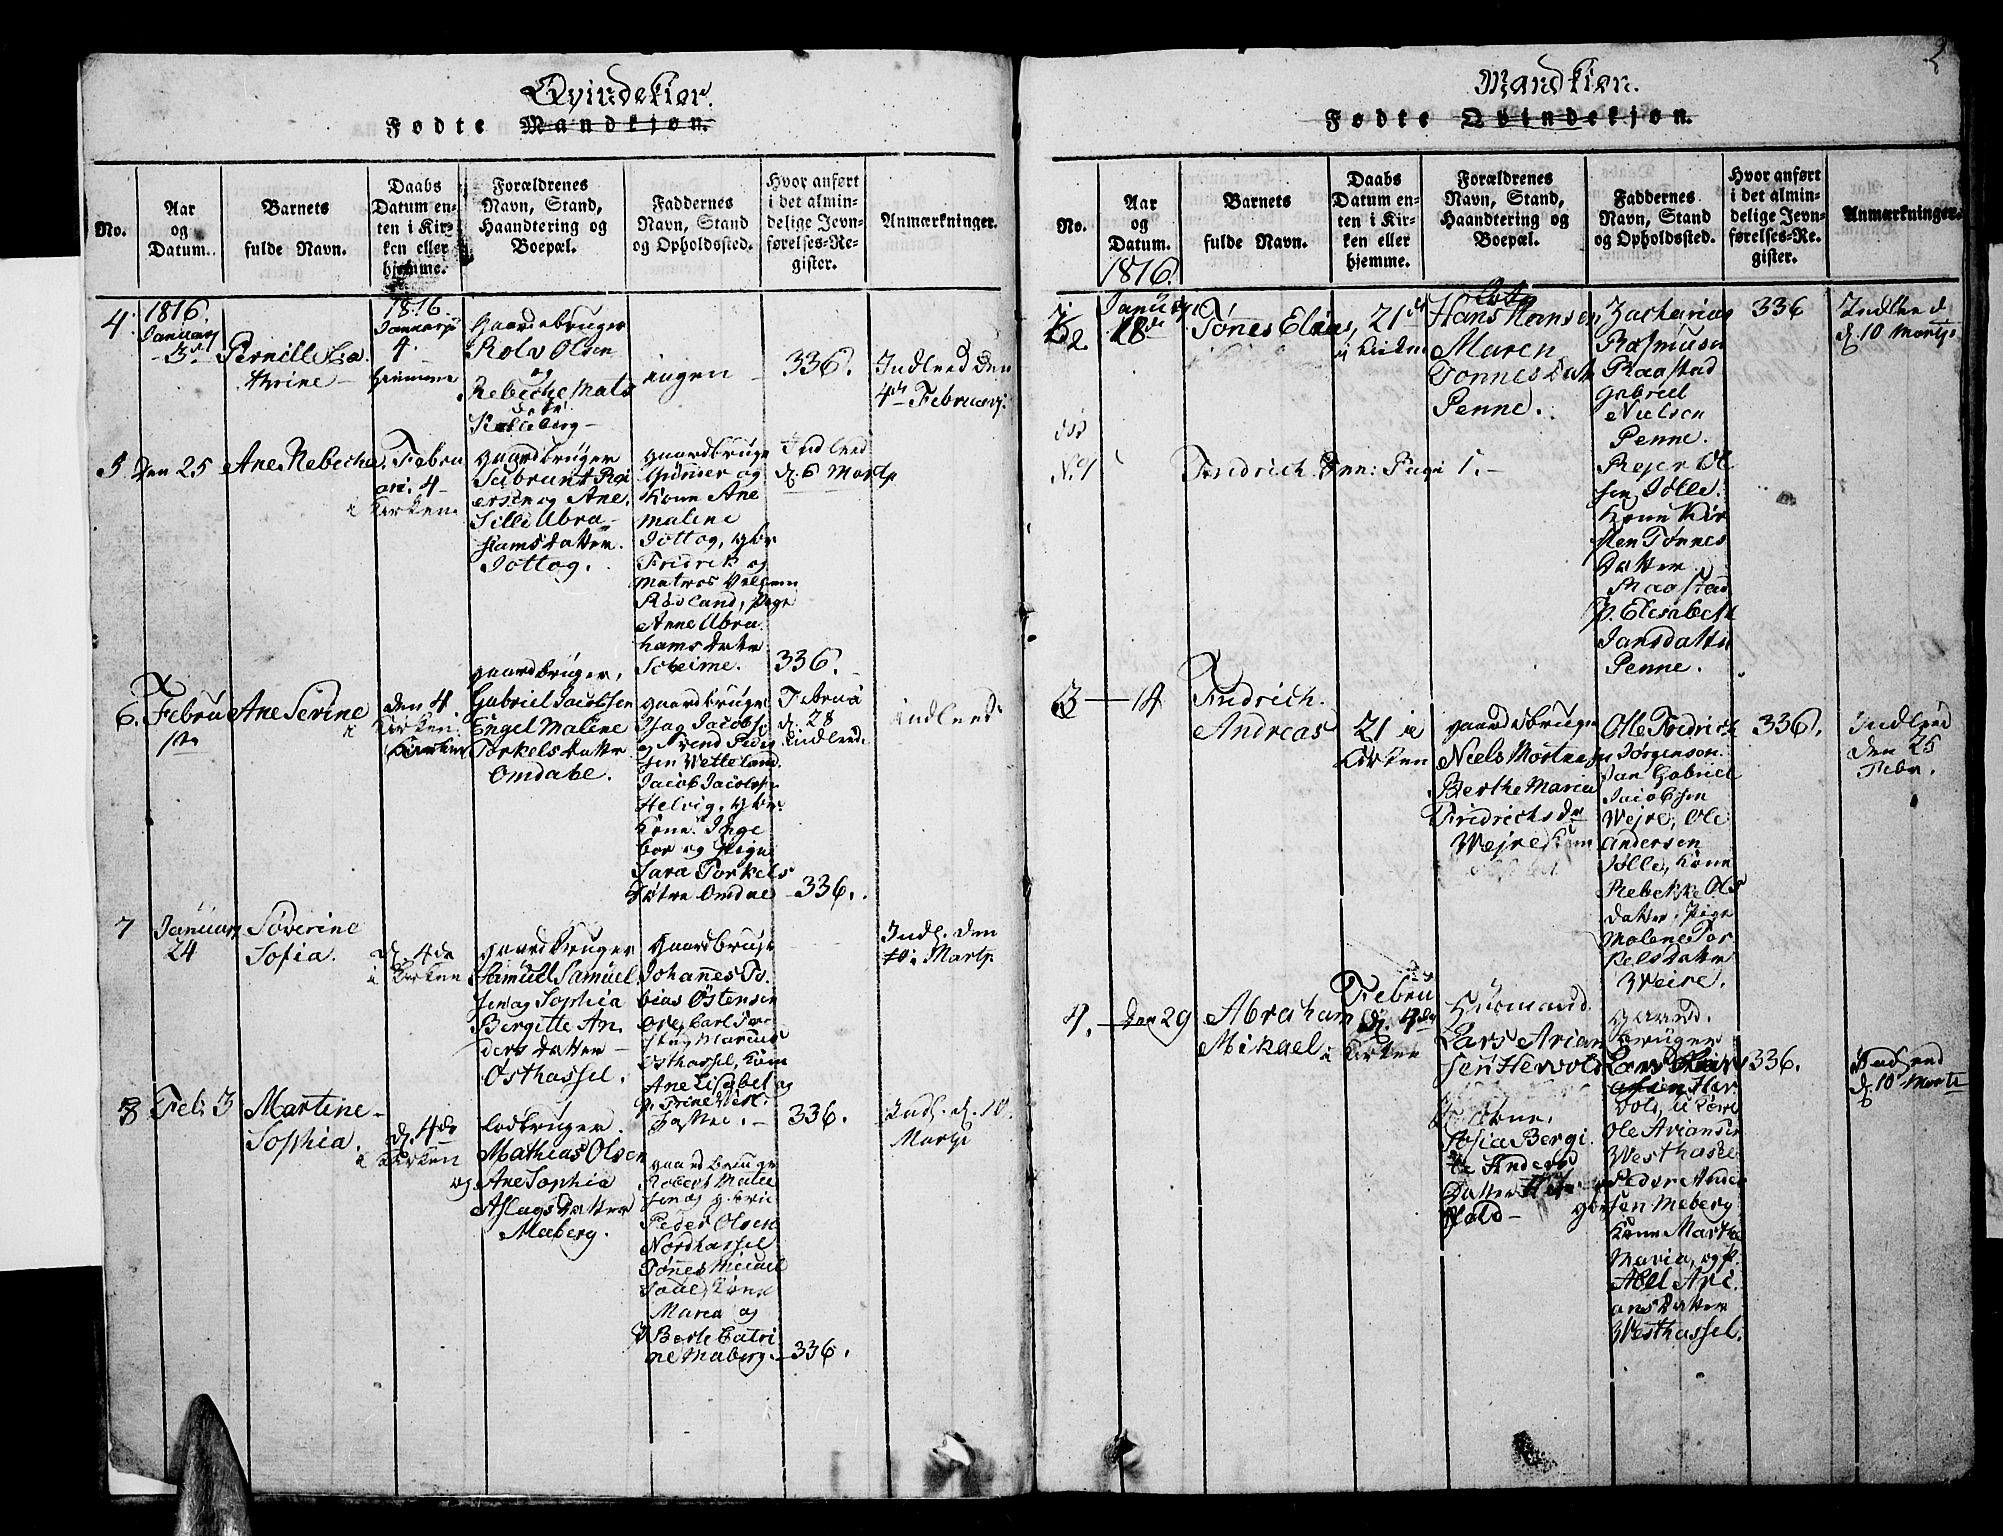 Qvindekiør.
Fødte Mandkjøn.
No.
Aar
og
Datum.
Barnets
fulde Navn.
Daabs
Datum en-
ten i Kir-
ken eller
hjemme.
Forældrenes
Navn, Stand,
Haandtering og
Boepæl.
Faddernes
Navn, Stand
og Opholdssted.
Hvor anført
i det almin-
delige Jevn-
førelses-Re-
gister.
Anmærkninger.
4.
1816.
Januarj
3de
Pernille Ca
thrine
1816
Januarj
4.
hiemme
Gaardebruger
Rolv Olsen
og
Rebeche Mats
datr
ingen
336.
Indleed Den
4de Februarj.
5
Den 25
Ane Rebecha.
Febru
ari. 4
i Kirken.
gaardbruger
ersen og Ane
Silli Abra
hams datter.
Jottog.
gaardbruge
Gunner og
Kone Ane
malene
Jottog, gbr
Fridrik og
Røsland, Pige
Anne Abra
hams datr
Scheime.
Indleed
d. 6 Martj
336.
6.
Febru
1te
Ane Serine
den 4
i Kirken.
gaardbruger,
Gabriel Jacobsen
Engel Malene
Torkels datter
Omdahl.
gaardbruge
Isag Jacobs.
og Svend Peds
sen Vetteland.
Jacob Jacobs.
Helvig, gbr.
Kone. Inge
bor og Pige
Sara Torkels
døtre Omdal
Februa
d. 28
Indleed.
336.
Indleed
7
Januarj
24
Søverine
Sofia.
d. 4de
i Kirken
gaardbruger
Samuel Samuel
sen og Sophia
Bergitte An.
ders datter
Østhassel.
gaardbruge
Johannes To.
bias Østensen
Ore, Carl
Marcus
Østhassel, Kone
Ane Lisabet og
p. Trine Vest.
hassel.
336.
Indl. den
10. Martj
8
Feb. 3
Martine
Sophia.
d. 4de
i Kirken
Lodbruger.
Mathias Olsen
og Ane Sophia
Aslags datter
Maberg.
gaardbruge
Robert
sen og g. bru
Peder Olsen
Nordhassel
Tønes Michael
Kone
Maren og
p Berte Catri
ne Maberg.
336.
Indl. d. 10.
Martj
2
Mandkiøn.
Fødte Qvindekjøn.
No.
Aar
og
Datum.
1816.
Barnets
fulde Navn.
Daabs
Datum en-
ten i Kir-
ken eller
hjemme.
Forældrenes
Navn, Stand,
Haandtering og
Boepæl.
Faddernes
Navn, Stand
og Opholdssted.
Hvor anført
i det almin-
delige Jevn-
førelses-Re-
gister.
Anmærkninger.
2.
Januarj
18de
Tønes Elias,
21de
i Kirken
Hans Hansen
Maren
Tønnes datr
Penne.
Zacharias
Rasmusen
Raastad
Gabriel
Nielsen
Penne.
Rejer Ol
sen Jølle.
Kone Kir
sten Tønnes
datter
Raastad
p. Elisabeth
Jansdatter
Penne.
336
Indleed
d. 10 Martj.
No 1
Fridrich
1.
3
14
Fridrich
Andreas
21 i
Kirken
gaardebruger
Niels Mortensen
Berthe Maria
Fridrichs dr
Wejre
Olle Fredrich
Jørgenson.
Jan Gabriel
Jacobsen
Wejre, Ole
Andersen
Jølle, Kone
Rebekke Ols
datter. Pige
Malene Tor
kels datter
Weire.
336.
Indleed
den 25
Febr.
4.
den 29
Abraham
Mikael
Febru
d. 4de
i Kirken
Husmand.
Lars Arian
sen Hervold
Kone,
Sofia Bergi.
te Anders
datter Her
vold
gaard.
bruger
Her
vold,
Ole Ariansen
Westhassel
Peder Ander
gbr sen Meberg
Kone Martha
Maria, og p.
Abel Ari
ans datter
Westhassel.
336.
Indleed
d. 10 Marti